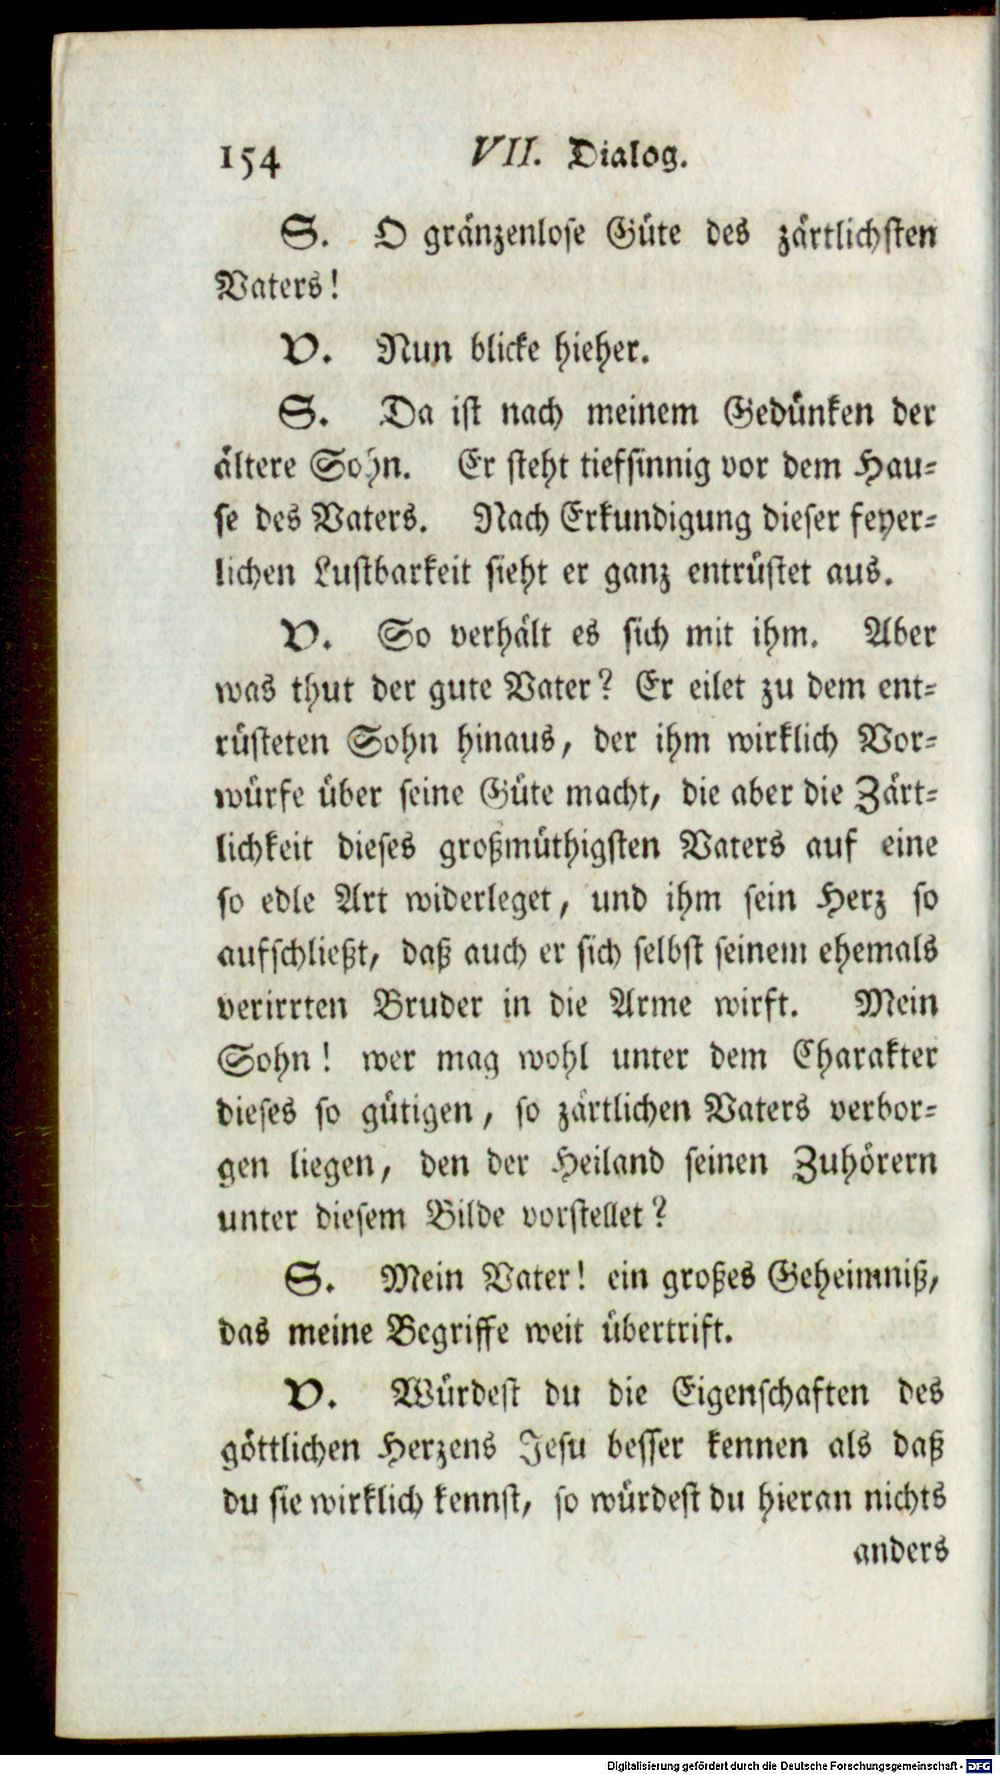 154 VII. Dialog.
S. O gränzenlose Güte des zärtlichsten
Vaters!
V. Nun blicke hieher.
S. Da ist nach meinem Gedünken der
ältere Sohn. Er steht tiefsinnig vor dem Hau-
se des Vaters. Nach Erkundigung dieser feyer-
lichen Lustbarkeit sieht er ganz entrüstet aus.
V. So verhält es sich mit ihm. Aber
was thut der gute Vater? Er eilet zu dem ent-
rüsteten Sohn hinaus, der ihm wirklich Vor-
würfe über seine Güte macht, die aber die Zärt-
lichkeit dieses großmüthigsten Vaters auf eine
so edle Art widerleget, und ihm sein Herz so
aufschließt, daß auch er sich selbst seinem ehemals
verirrten Bruder in die Arme wirft. Mein
Sohn! wer mag wohl unter dem Charakter
dieses so gütigen, so zärtlichen Vaters verbor-
gen liegen, den der Heiland seinen Zuhörern
unter diesem Bilde vorstellet?
S. Mein Vater! ein großes Geheimniß,
das meine Begriffe weit übertrift.
V. Würdest du die Eigenschaften des
göttlichen Herzens Jesu besser kennen als daß
du sie wirklich kennst, so würdest du hieran nichts
anders
Digitalisierung gefördert durch die Deutsche Forschungsgemeinschaft - DFG